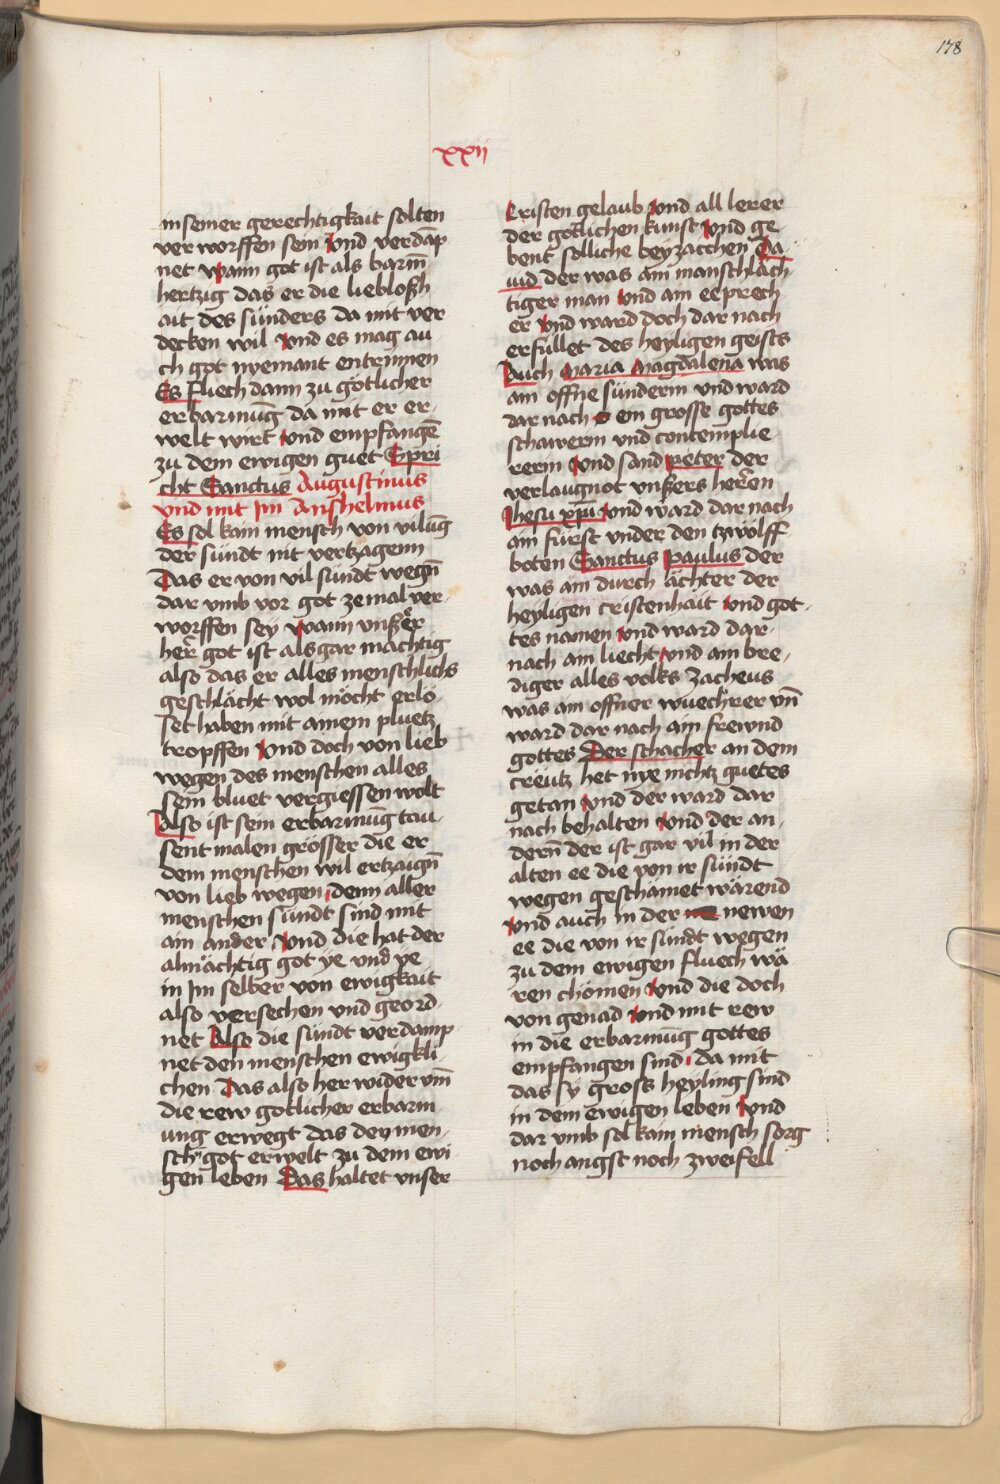 178
xxij
in seiner gerechtigkait solten
ver worffen sein Vnd verdāp
net Wann got ist als barm̄
hertzig das er die lieblosh
ait des sünders da mit ver
decken wil Vnd es mag au
ch got nyemant entrinnen
Es fluech dann zu götlicher
erbarmūg da mit er er
welt wirt Vnd empfangē
zu dem ewigen guet Spri
cht Sanctus Augustinus
vnd mit Im Anshelmus
Es sol kain mensch von vilūg
der sündt nit vertzagenn
Das er von vil sündt wegn̄
dar vmb vor got ze mal ver
worffen sey Wann vnser
her got ist als gar mächtig
also das er alles menschlichs
geschlächt wol möcht erlö
set haben mit ainem pluetz
tropffen Vnd doch von lieb
wegen des menschen alles
sein bluet vergiessen wolt
Also ist sein erbarmūg tau
sent malen grösser die er
dem menschen wil ertzaign̄
von lieb wegen denn aller
menschen sündt sind mit
ain ander Vnd die hat der
almächtig got ye vnd ye
in Im selber von ewigkait
also versechen vnd geord
net Also die sündt verdamp
net den menschen ewigkli
chen Das also her wider vm̄
die rew gotlicher erbarm
ung erwegt das den men
sch got erwelt zu dem ewi
gen leben Das haltet vnser
Cristen gelaub Vnd all lerer
der götlichen kunst Vnd ge
bent solliche beyzaichen Da
uid der was ain manschläch
tiger man Vnd ain eeprech
er Vnd ward doch dar nach
erfullet des heyligen geists
Auch Maria Magdalena was
ain offne sünderin vnd ward
dar nach ein grosse gottes
schawerin vnd contemplie
rerin Vnd sand peter der
verlaugnot vnsers herren
Jhesu xpi̅ Vnd ward dar nach
ain fürst vnder den tzwölff
boten Sanctus paulus der
was ain durch ächter der
heyligen cristenhait Vnd got
tes namen Vnd ward dar
nach ain liecht Vnd ain bre
diger alles volks Zacheus
was ain offner wuechrer vn̄
ward dar nach ain frewnd
gottes Der schacher an dem
creütz het nye nichtz guetes
getan Vnd der ward dar
nach behalten Vnd der an
dern̄ der ist gar vil in der
alten ee die von ir sündt
wegen geschämet wärend
Vnd auch in der newen
ee die von ir sündt wegen
zu dem ewigen fluech wä
ren chömen Vnd die doch
von genad Vnd mit rew
in die erbarmūg gottes
empfangen sind da mit
das sy gross heyling sind
in dem ewigen leben Vnd
dar vmb sol kain mensch sorg
noch angst noch zweifell